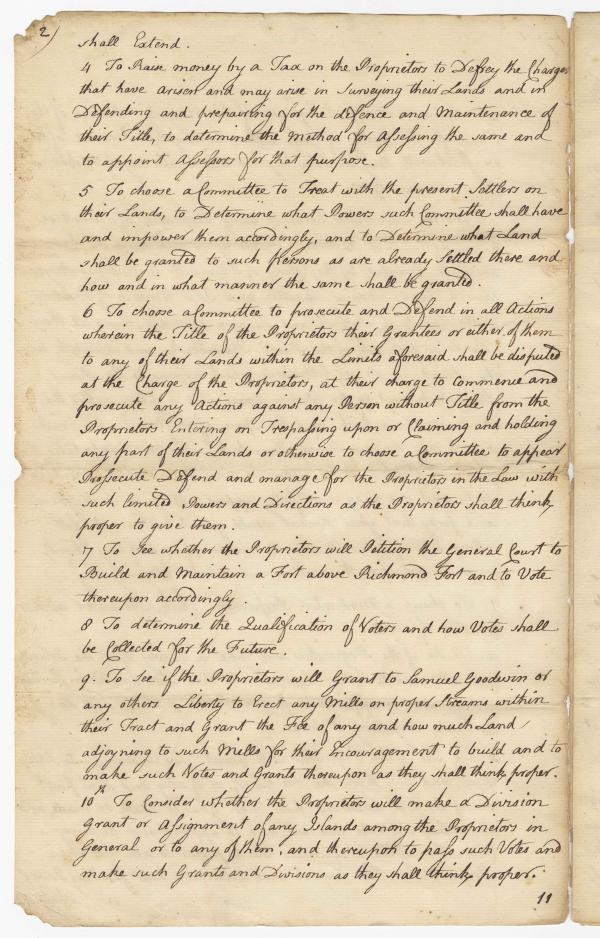 2)
shall Extend.
4 To Raise money by a Tax on the Proprietors to Defrey the Charges
that have arisen and may arise in surveying their Lands and in
Defending and prepairing for the defence and Maintenance of
their Title, to determine the Method for Assessing the same and
to appoint Assessors for that purpose.
5 To choose a Committee to Treat with the present Settlers on
their Lands, to Determine what Powers such Committee shall have
and impower them accordingly, and to Determine what Land
shall be granted to such Persons as are already settled there and
how and in what manner the same shall be granted.
6 To choose a Committee to prosecute and Defend in all Actions
wherein the Title of the Proprietors their Grantees or either of them
to any of their Lands within the Limits aforesaid shall be disputed
at the Charge of the Proprietors, at their charge to commence and
prosecute any Actions against any Person without Title from the
Proprietors Entering on Trespassing upon or Claiming and holding
any part of their Lands or otherwise to choose a Committee to appear
Prossecute Defend and manage for the Proprietors in the Law with
such limited Powers and Directions as the Proprietors shall think
proper to give them.
7 To see whether the Proprietors will Petition the General Court to
Build and Maintain a Fort above Richmond Fort and to Vote
thereupon accordingly.
8 To determine the Qualification of Voters and how Votes shall
be Collected for the Future.
9. To see if the Proprietors will Grant to Samuel Goodwin or
any others Liberty to Erect any Mills on proper Streams within
their Tract and Grant the Fee of any and how much Land
adjoyning to such Mills for their Encouragement to build and to
make such Votes and Grants thereupon as they shall think proper.
10th To Consider whether the Proprietors will make a Division
Grant or Assignment of any Islands among the Proprietors in
General or to any of them, and thereupon to pass such Votes and
make such Grants and Divisions as they shall think proper.
11